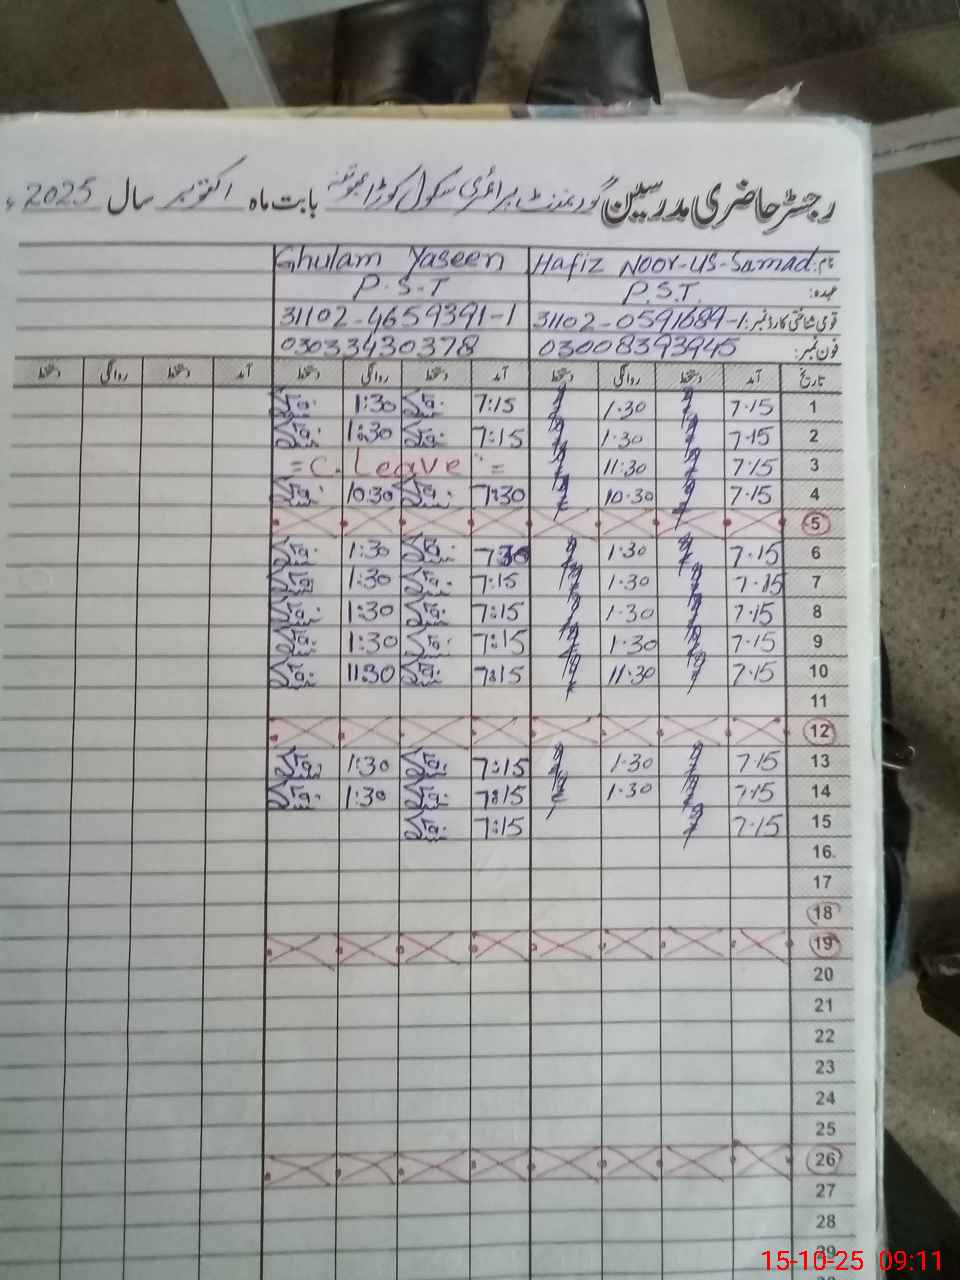 رجسٹر حاضری مدرسین گورنمنٹ پرائمری سکول کوڑا بھوتنہ بابت ماہ اکتوبر سال 2025ء
نام: Hafiz Noor-us-Samad Ghulam Yaseen
عہدہ: P.S.T. P.S.T
قومی شناختی کارڈ نمبر: 31102-0591689-1 31102-4659391-1
فون نمبر: 03008393945 03033430378
تاریخ آمد دستخط روانگی دستخط آمد دستخط روانگی دستخط آمد دستخط روانگی دستخط
1 7.15 1.30 7:15 1:30
2 7.15 1.30 7:15 1:30
3 7.15 11.30 = C. Leave =
4 7.15 10.30 7:30 10:30
5
6 7.15 1.30 7:30 1:30
7 7.15 1.30 7:15 1:30
8 7.15 1.30 7:15 1:30
9 7.15 1.30 7:15 1:30
10 7.15 11.30 7:15 11:30
11
12
13 7.15 1.30 7:15 1:30
14 7.15 1.30 7:15 1:30
15 7.15 7:15
16
17
18
19
20
21
22
23
24
25
26
27
28
29
15-10-25 09:11